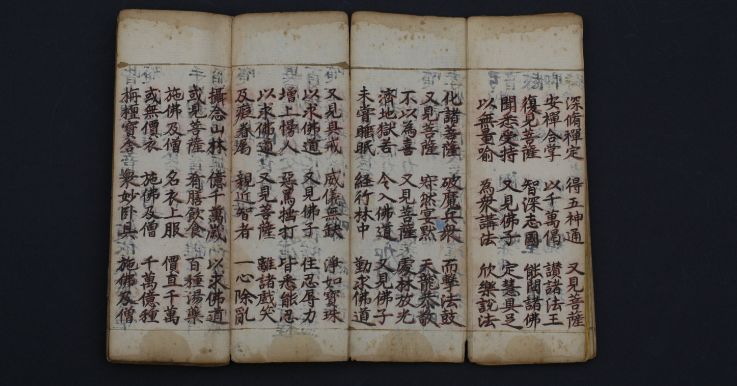 深脩禪定 得五神通 又見菩薩
安禪合掌 以千萬偈 讚諸法王
復見菩薩 智深志固 能問諸佛
聞悉受持 又見佛子 定慧具足
以無量喻 為衆講法 欣樂說法
化諸菩薩 破魔兵衆 而擊法鼓
又見菩薩 寂然宴默 天龍恭敬
不以為喜 又見菩薩 處林放光
濟地獄苦 令入佛道 又見佛子
未甞睡眠 經行林中 勤求佛道
又見具戒 威儀無缺 淨如寶珠
以求佛道 又見佛子 住忍辱力
增上慢人 惡罵捶打 皆悉能忍
以求佛道 又見菩薩 離諸戲笑
及癡眷屬 親近智者 一心除亂
攝念山林 億千萬歲 以求佛道
或見菩薩 肴膳飲食 百種湯藥
施佛及僧 名衣上服 價直千萬
或無價衣 施佛及僧 千萬億種
栴檀寶舍 衆妙卧具 施佛及僧